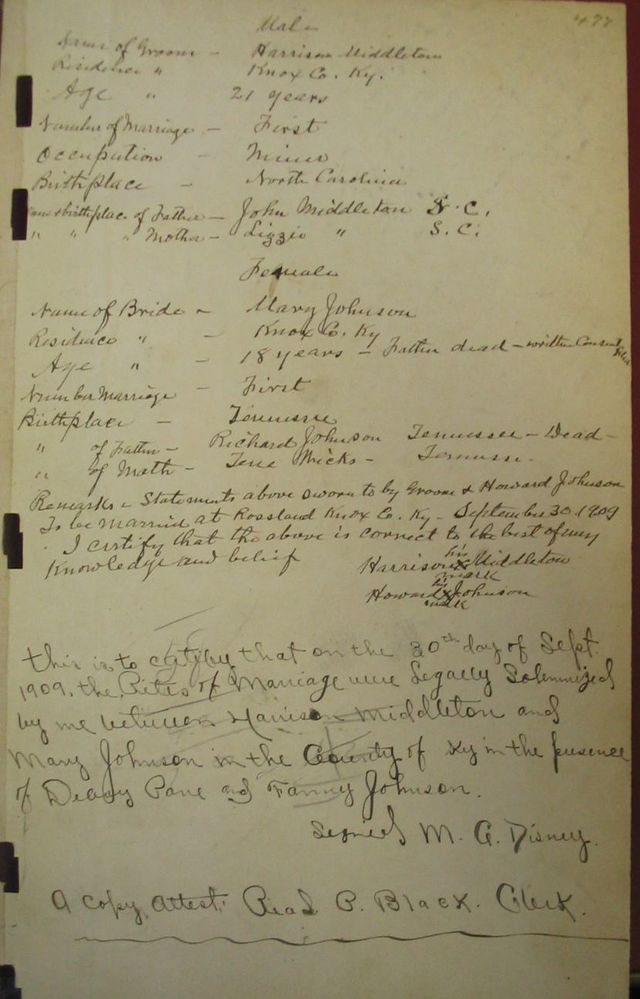 477
Male
Name of Groom - Harrison Middleton
Residence " Knox Co. Ky.
Age " 21 years
Number of Marriage - First
Occupation - Miner
Birthplace - North Carolina
Name & birthplace of Father - John Middleton N.C.
" " " Mother - Lizzie " S.C.
Female
Name of Bride - Mary Johnson
Residence " - Knox Co. Ky
Age " - 18 years - Father dead - written Consent filed
Number Marriage - First
Birthplace - Tennessee
" of Father - Richard Johnson Tennessee - Dead -
" of Moth - Tene Micks - Tennessee.
Remarks - Statements above sworn to by Groom & Howard Johnson
To be married at Rossland Knox Co. Ky - September 30 1909
I certify that the above is correct to the best of my
Knowledge and belief
Harrison his X mark Middleton
Howard his X mark Johnson
this is to certify that on the 30th day of Sept.
1909. the Rites of Marriage were Legally Solemnized
by me between Harrison Middleton and
Mary Johnson in the County of Ky in the presence
of Deavy Pane and Fanny Johnson.
Signed M. G. Disney.
A Copy. Attest: Read P. Black. Clerk.